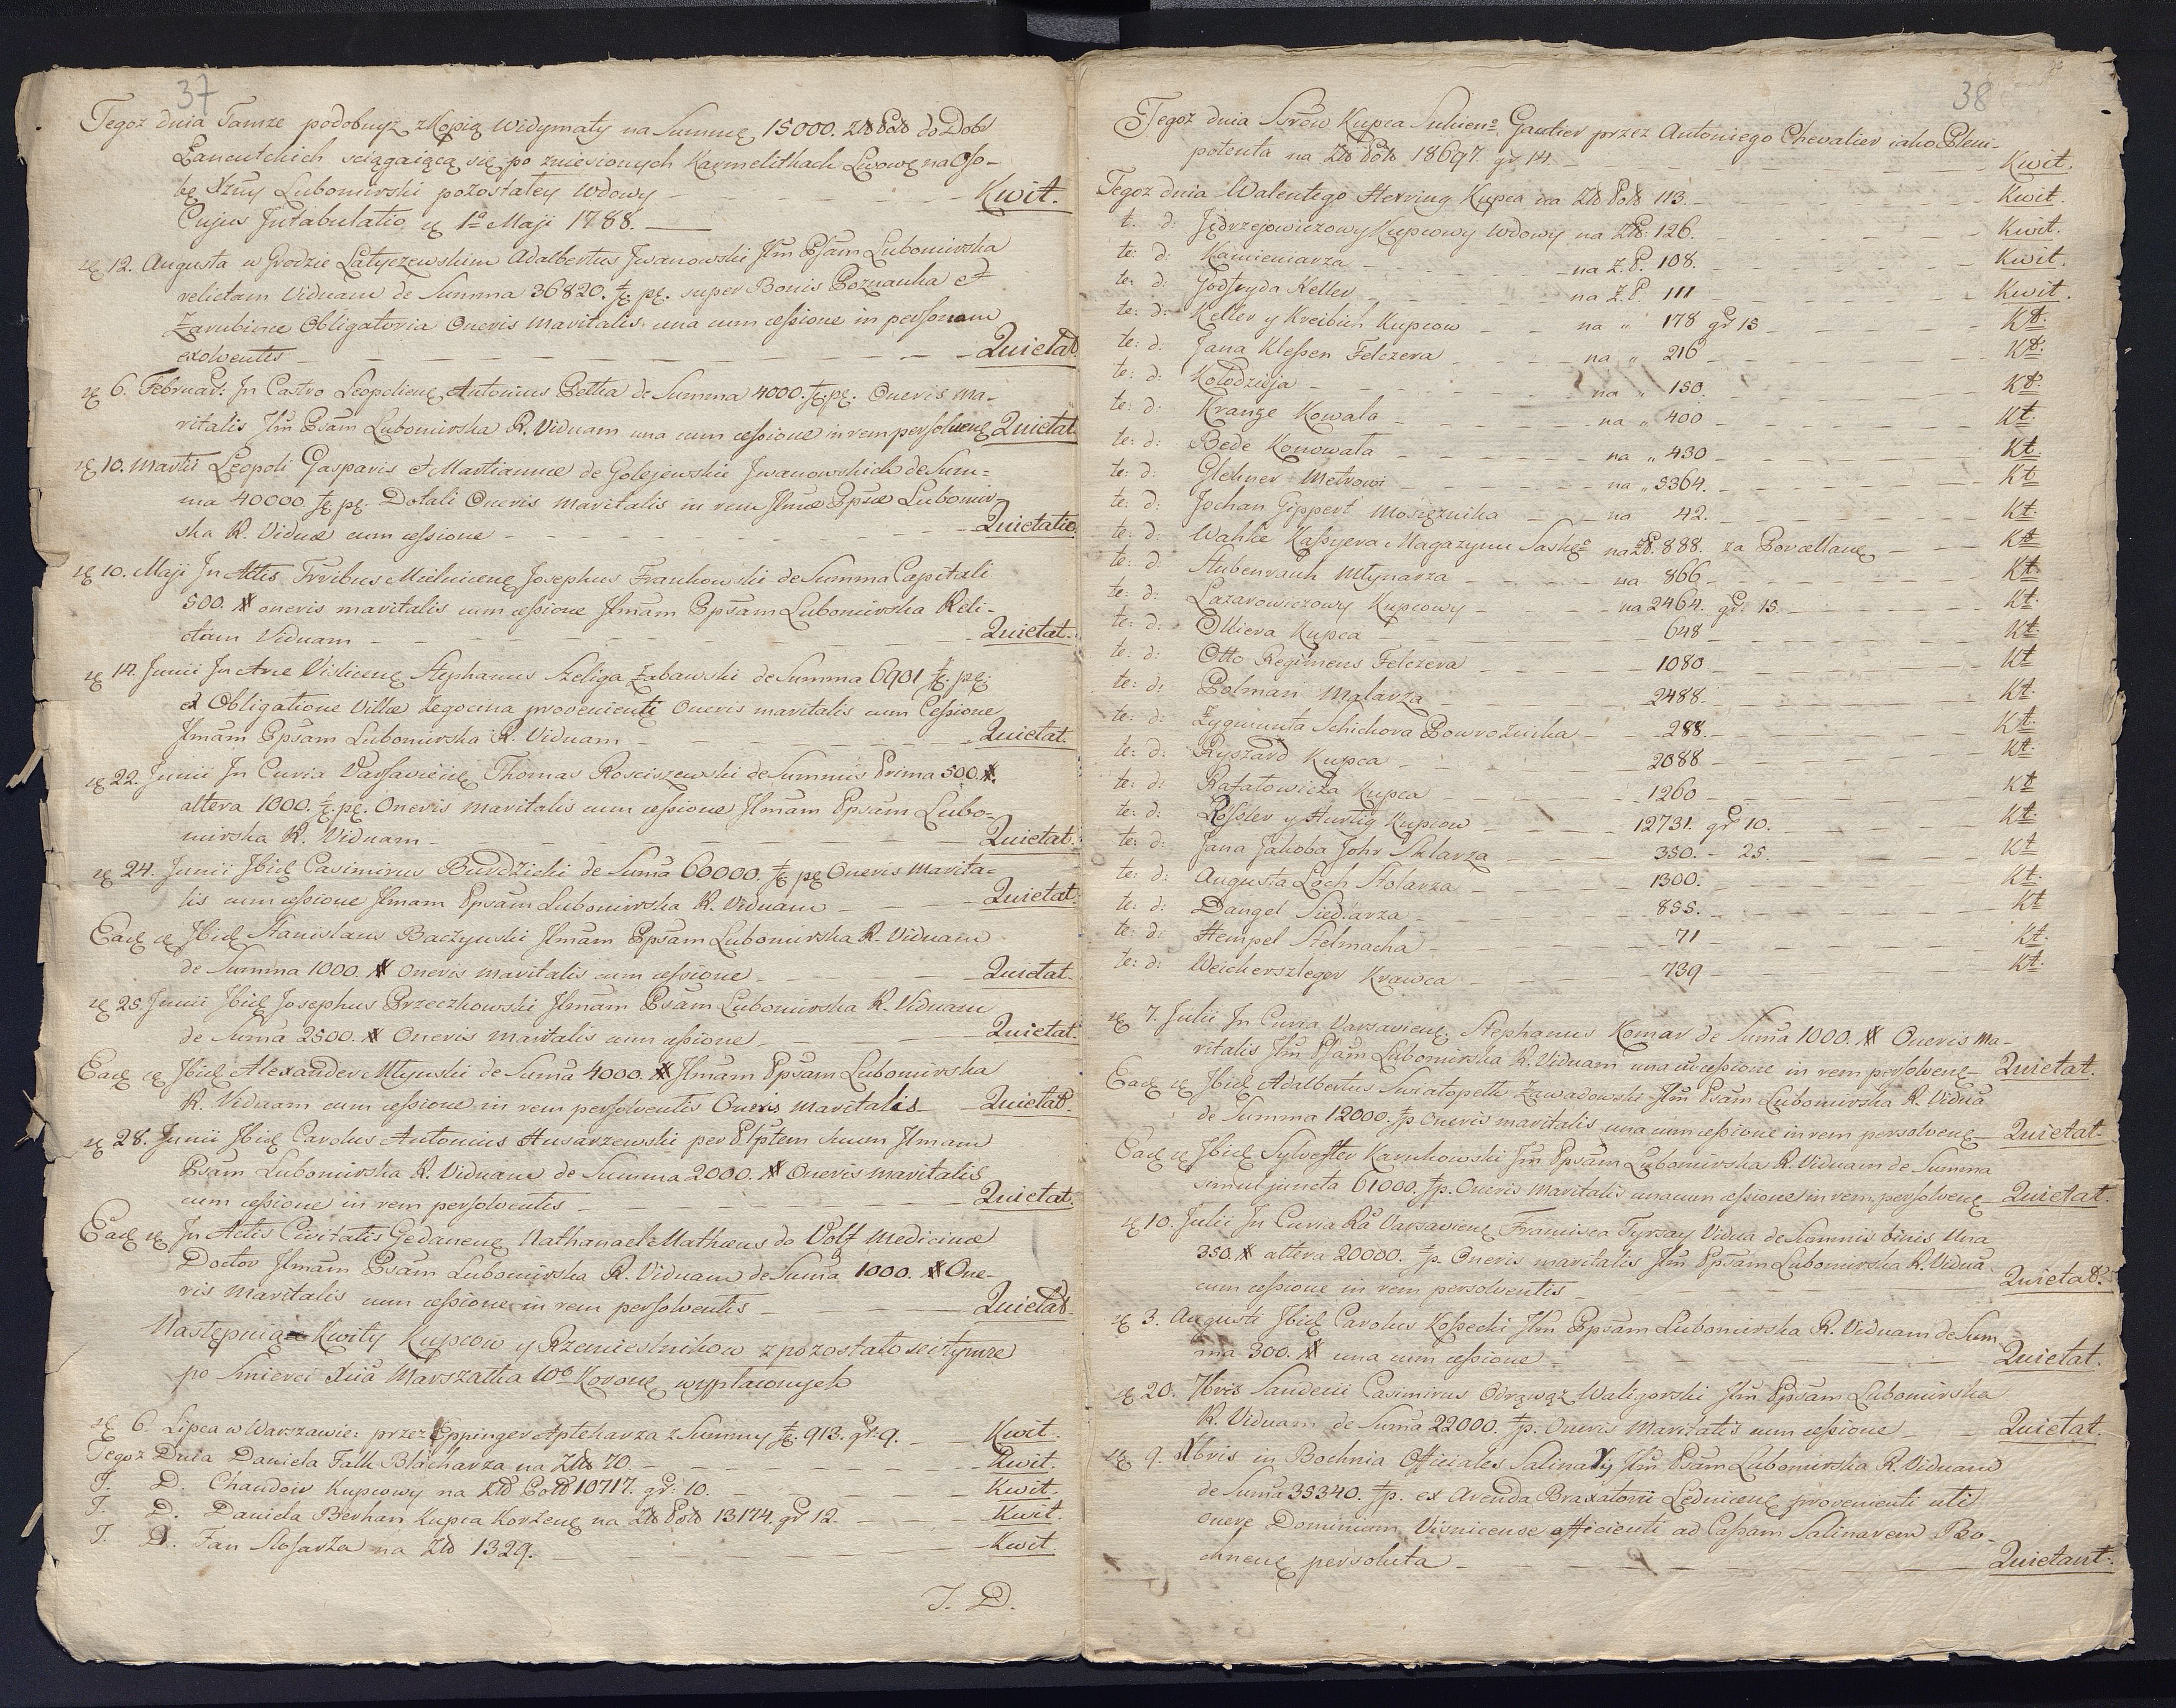 37
Tegoż dnia Tamże podobnyż z Kopią Widymaty na Summę 15000. Złł Pols do Dobr
Łancutskich sciągaiącą się po zniesionych Karmelitkach Lwow: na Oso-
bę Xzny Lubomirski pozostałey Wdowy - - - Kwit.
Cujus Intabulatio 1ª Maji 1788.
12. Augusta w Grodzie Latyczewskim Adalbertus Iwanowski Jlm Psam Lubomirska
relictam Viduam de Summa 36820. super Bonis Poznanka et
Zarubince Obligatoria Oneris Maritalis una cum cessione in personam
exolventis - - - Quietat
6. Februar: In Castro Leopoliens Antonius Pettia de Summa 4000. Oneris Ma-
ritalis Jlm Psam Lubomirska R. Viduam una cum cessione in rem persolvens Quietat.
10. Martii Leopoli Gasparis et Martianna de Golejewskie Iwanowskich de Sum=
ma 40000 Dotali Oneris Maritalis in rem Jlmæ Ppsæ Lubomir-
ska R. Viduæ cum cessione - - - Quietatio
10. Maji In Actis Mielnicens Josephus Frankowski de Summa Capitali
500. # oneris maritalis cum cessione Jlmam Ppsam Lubomirska Reli-
ctam Viduam - - - Quietat.
14. Junii In Arce Vislicens Stephanus Szeliga Żabawski de Summa 6901
et Obligatione Villæ Legocina provenienti Oneris maritalis cum Cessione
Jlmam Ppsam Lubomirska R. Viduam - - - Quietat.
22. Junii In Curia Varsaviens Thomas Rosciszewski de Summis Prima 500. #.
altera 1000. Oneris maritalis cum cessione Jlmam Ppsam Lubo-
mirska R. Viduam - - - Quietat.
24. Junii Ibid Casimirus Burdzicki de Suma 60000. Oneris Marita=
lis cum cessione Jlmam Ppsam Lubomirska R. Viduam - - - Quietat.
Ead Ibid Stanislaus Baczynski Jlmam Ppsam Lubomirska R. Viduam
de Summa 1000. # Oneris maritalis cum cessione - - - Quietat.
25. Junii Ibid Josephus Brzeczkowski Jlmam Psam Lubomirska R. Viduam
de Suma 2500. # Oneris Maritalis cum cessione - - - Quietat.
Ead Ibid Alexander Młynski de Suma 4000. # Jlmam Ppsam Lubomirska
R. Viduam cum cessione in rem persolventis Oneris Maritalis - Quietat.
28. Junii Ibid Carolus Antonius Husarzewski per suum Jlmam
Psam Lubomirska R. Viduam de Summa 2000. # Oneris Maritalis
cum cessione in rem persolventis - - - Quietat.
Ead In Actis Civitatis Gedanens Nathanael Mathæus de Volf Medicinæ
Doctor Jlmam Psam Lubomirska R. Viduam de Suma 1000. # One-
ris Maritalis cum cessione in rem persolventis - - - Quietat.
Następuią Kwity Kupcow y Rzemieslnikow z pozostało
po Smierci Xcia Marszałka Wo Koron wypłaconych
6. Lipca w Warszawie: przez Eppinger Aptekarza z Summy 913. gr. 9. - - Kwit.
Tegoż Dnia Daniela Falk Blacharza na Złł 70 - - - Kwit.
T. D. Chaudoir Kupcowy na Złł Pol 10717. gr: 10. - - - Kwit.
T. D. Daniela Berhan Kupca Korzene na Złł Pols 13174. gr 12. - - - Kwit.
T. D. Fan Slosarza na Złł 1329. - - - Kwit.
T. D.
38
Tegoż dnia Srow Kupca Sukien° Gautier przez Antoniego Chevalier iako Pleni-
potenta na Złł Pols 18697. gr 14. - - - Kwit.
Tegoż dnia Walentego Herring Kupca na Złł Pols 113. - - - Kwit.
t. d: Jędrzejowiczowy Kupcowy Wdowy na Złł: 126. - - - Kwit.
te: d: Kamieniarza - - - na Z.P. 108. - - - Kwit.
te: d: Godfryda Keller - - - na Z.P. 111 - - - Kwit.
te: d: Keller y Kreibich Kupcow - - na " 178 gr 15 - - - Kt.
te: d: Jana Klessen Felczera - - - na " 216 - - - Kt.
te: d: Kołodzieja - - - na " 150. - - - Kt.
te: d: Krange Kowala - - - na " 400 - - - Kt.
te: d: Bede Konowała - - - na " 430 - - - Kt.
te: d: Glekner Metrowi - - - na " 3364. - - - Kt
te: d: Jochan Gippert Mosięznika - - na 42. - - - Kt.
te: d: Wahke Kassyera Magazynu Saske° na ZP. 888. za Porcellane - - Kt
te: d: Stubenrauh Młynarza - - - na 866 - - - Kt.
te: d: Lazarowiczowy Kupcowy - - - na 2464. gr: 15. - - - Kt.
te: d: Olliera Kupca - - - 648 - - - Kt.
te: d: Otto Regimens Felczera - - - 1080 - - - Kt
te: d: Polman Malarza - - - 2488. - - - Kt.
te: d: Zygmunta Schichora Powroźnika - - 288. - - - Kt.
te: d: Ryszard Kupca - - - 2088 - - - Kt.
te: d: Rafałowicza Kupca - - - 1260 - - - Kt
te: d: Ressler y Hurtig Kupcow - - - 12731. gr 10. - - - Kt.
te: d: Jana Jakoba Johr Sklarza - - - 350. - 25. - - - Kt
te: d: Augusta Loch Stolarza - - - 1300. - - - Kt.
te: d: Dangel Siedlarza - - - 855. - - - Kt
te: d: Hempel Stelmacha - - - 71 - - - Kt.
te: d: Weicherszleger Krawca - - - 739 - - - Kt.
7. Julii In Curia Varsaviens Stephanus Komar de Suma 1000. # Oneris Ma-
ritalis Jlm Psam Lubomirska R. Viduam una cu cessione in rem persolvens - Quietat.
Ead Ibid Adalbertus Swiatopełk Zawadowski Jlm Psam Lubomirska R. Vidua
de Summa 12000. Oneris maritalis una cum cessione in rem persolvens - Quietat.
Ead Ibid Sylvester Karukowski Jlm Ppsam Lubomirska R. Viduam de Summa
simul juncta 61000. Oneris Maritalis una cum cessione in rem persolvens - Quietat.
10. Julii In Curia Ra Varsaviens Francisca Tyrzay Vidua de Summis binis Una
350. # altera 20000. Oneris maritalis Jlm Ppsam Lubomirska R. Vidua
cum cessione in rem persolventis - - - Quietat.
3. Augusti Ibid Carolus Kossecki Jlm Ppsam Lubomirska R. Viduam de Sum
ma 300. # una cum cessione - - - Quietat.
20. 7bris Sandecii Casimirus Odrąwąż Waligorski Jlm Ppsam Lubomirska
R. Viduam de Suma 22000. Oneris Maritalis cum cessione - - Quietat.
9. Xbris in Bochnia Officiales Salinary Jlm Psam Lubomirska R. Viduam
de Suma 35340. ex Arenda Braxatorii Lednicens provenienti uti
onere Dominium Visnicense afficienti ad Cassam Salinarem Bo-
chnens persoluta - - - Quietant.